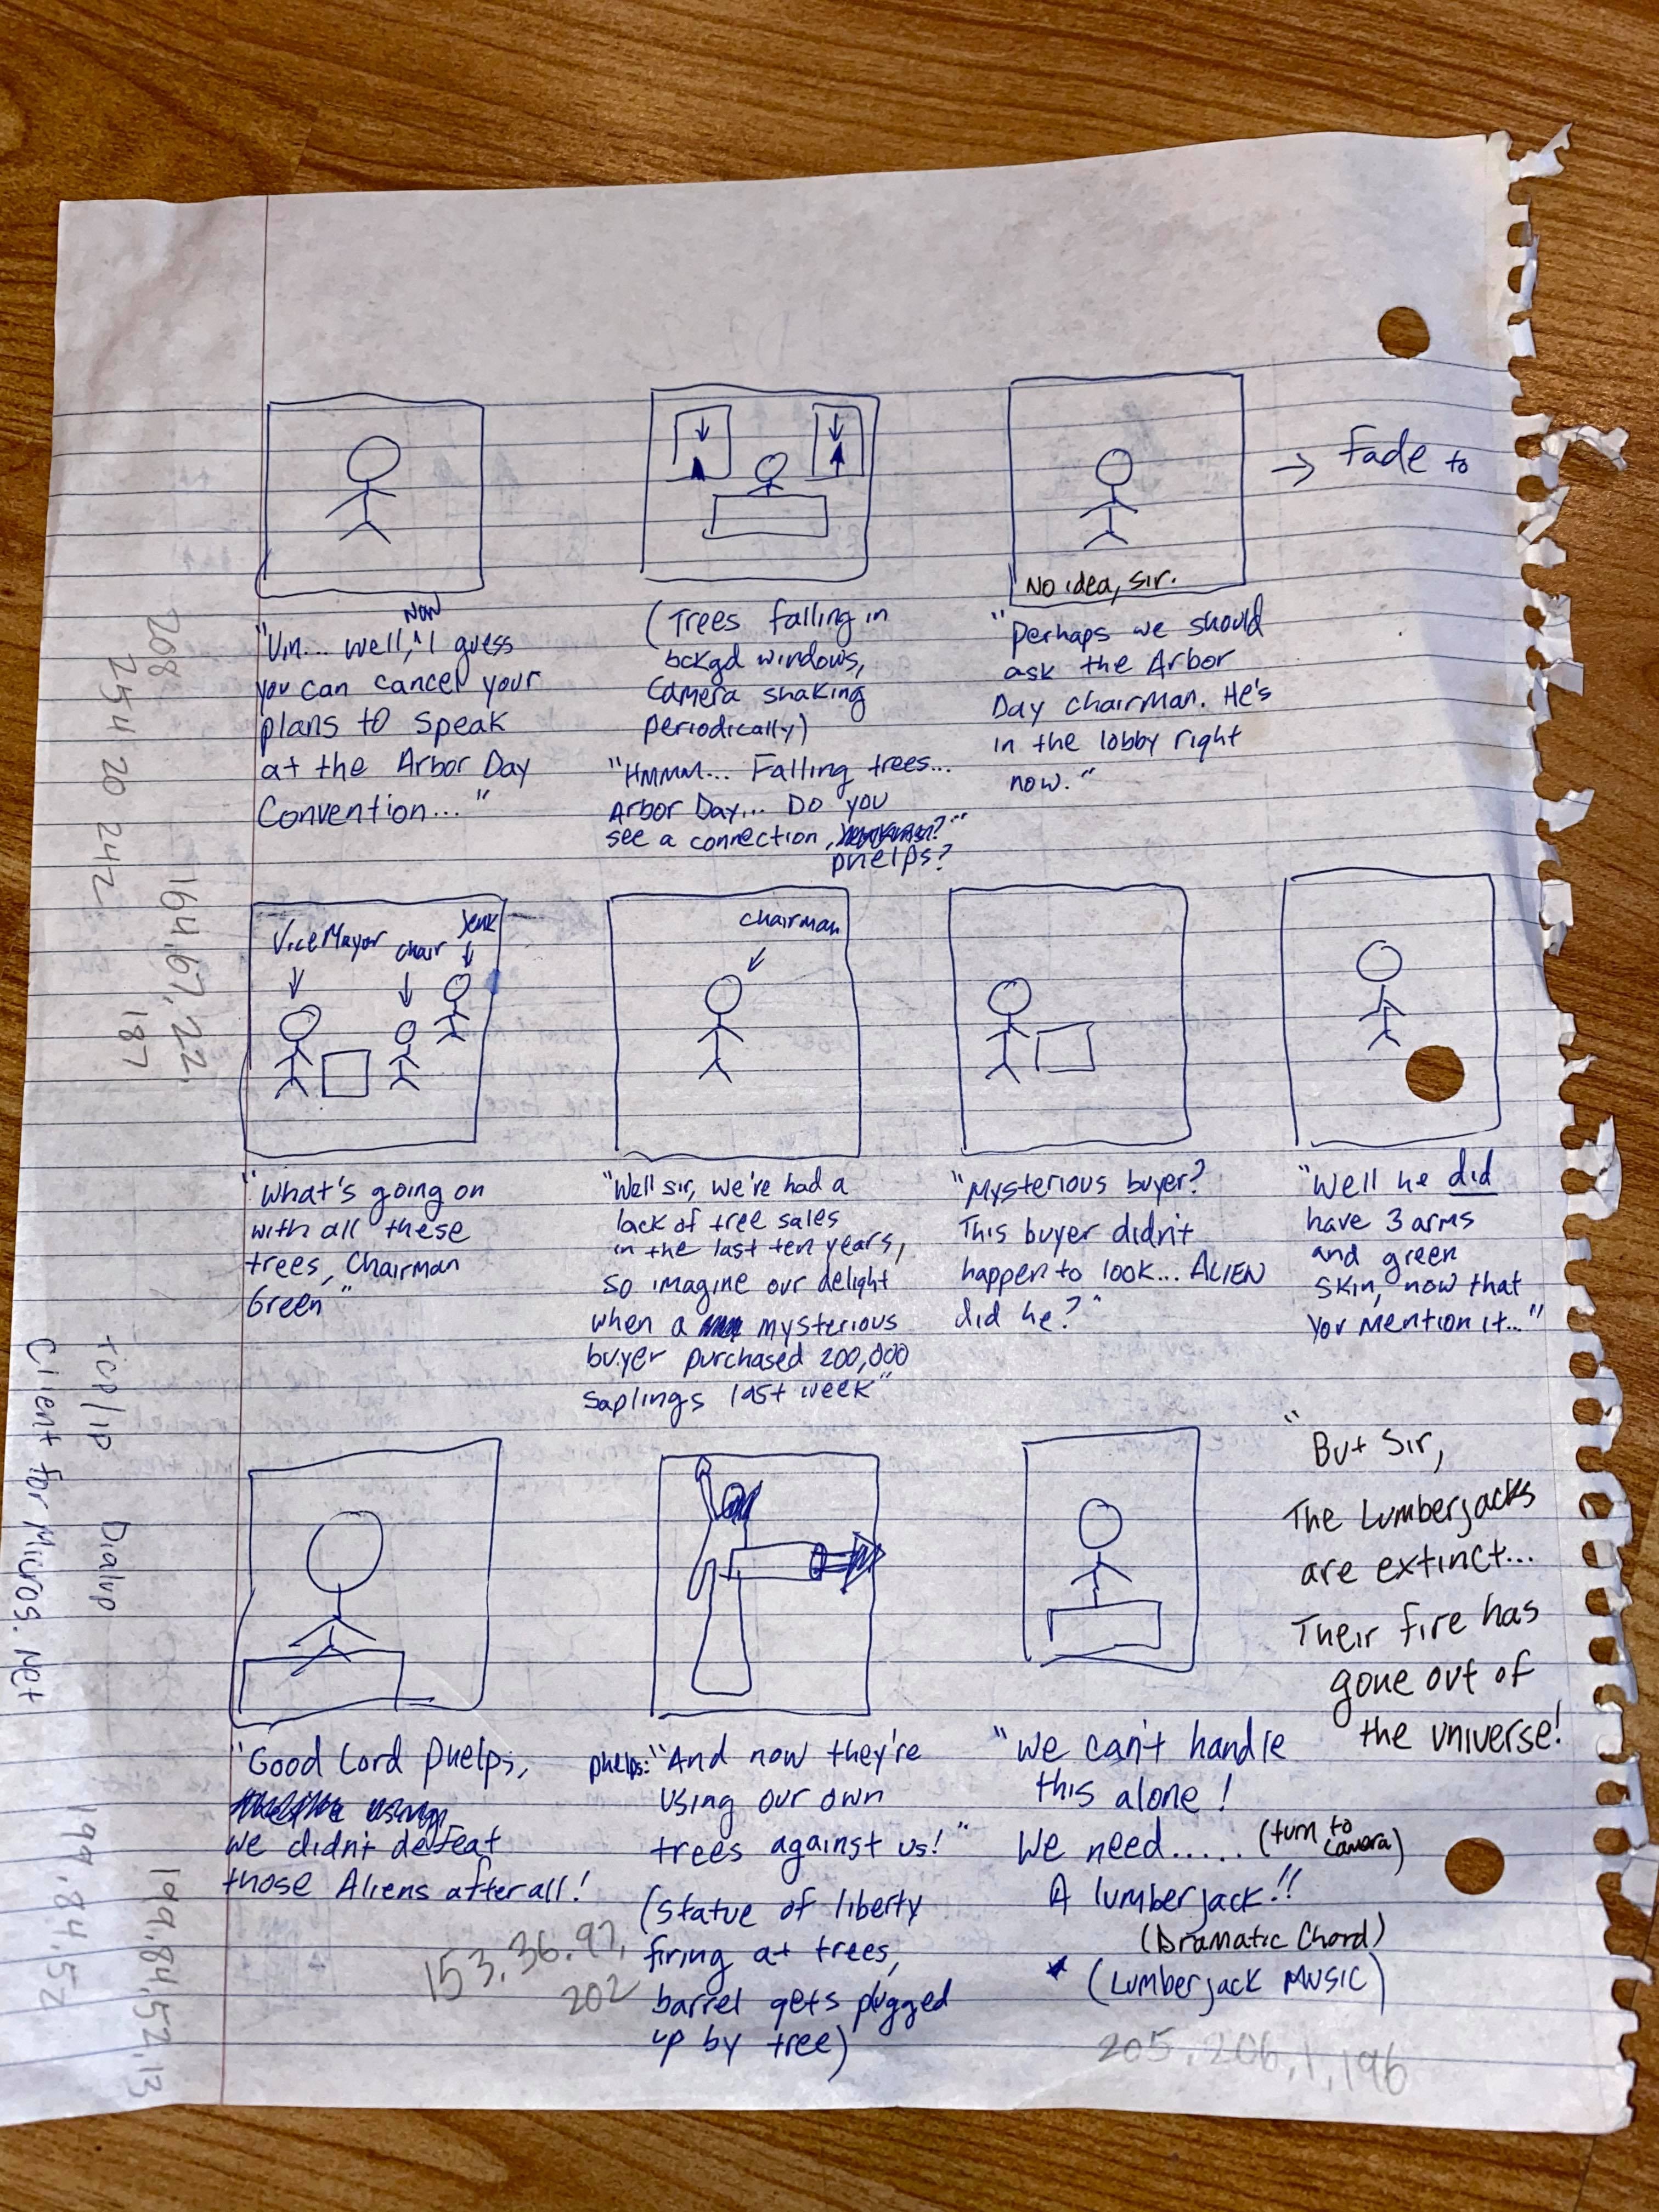 → Fade to
No idea, sir.
Now
"Um... well, ^ I guess
you can cancel your
plans to speak
at the Arbor Day
Convention..."
(Trees falling in
bckgd windows,
Camera shaking
periodically)
"HMMM... Falling trees...
Arbor Day... Do you
see a connection,
phelps?"
"Perhaps we should
ask the Arbor
Day chairman. He's
in the lobby right
now."
ViceMayor
Chair
Jenk
Chairman
"What's going on
with all these
trees, Chairman
Green"
"Well sir, we've had a
lack of tree sales
in the last ten years,
so imagine our delight
when a mysterious
buyer purchased 200,000
saplings last week"
"Mysterious buyer?
This buyer didn't
happen to look... ALIEN
did he?"
"Well he did
have 3 arms
and green
skin, now that
you mention it..."
"But Sir,
The Lumberjacks
are extinct...
Their fire has
gone out of
the universe!
"Good Lord phelps,
using
we didn't defeat
those Aliens after all!
phelps: "And now they're
using our own
trees against us!"
(Statue of liberty
firing at trees,
barrel gets plugged
up by tree)
"We can't handle
this alone!
We need..... (turn to
camera)
A lumberjack!!
(Dramatic Chord)
(Lumberjack MUSIC)
208
254 20 242
164.67.22.
187
TCP/IP Dialup
Client for Micros. Net
199.84.52.13
199.84.54
153.36.97.
202
205.206.1.196